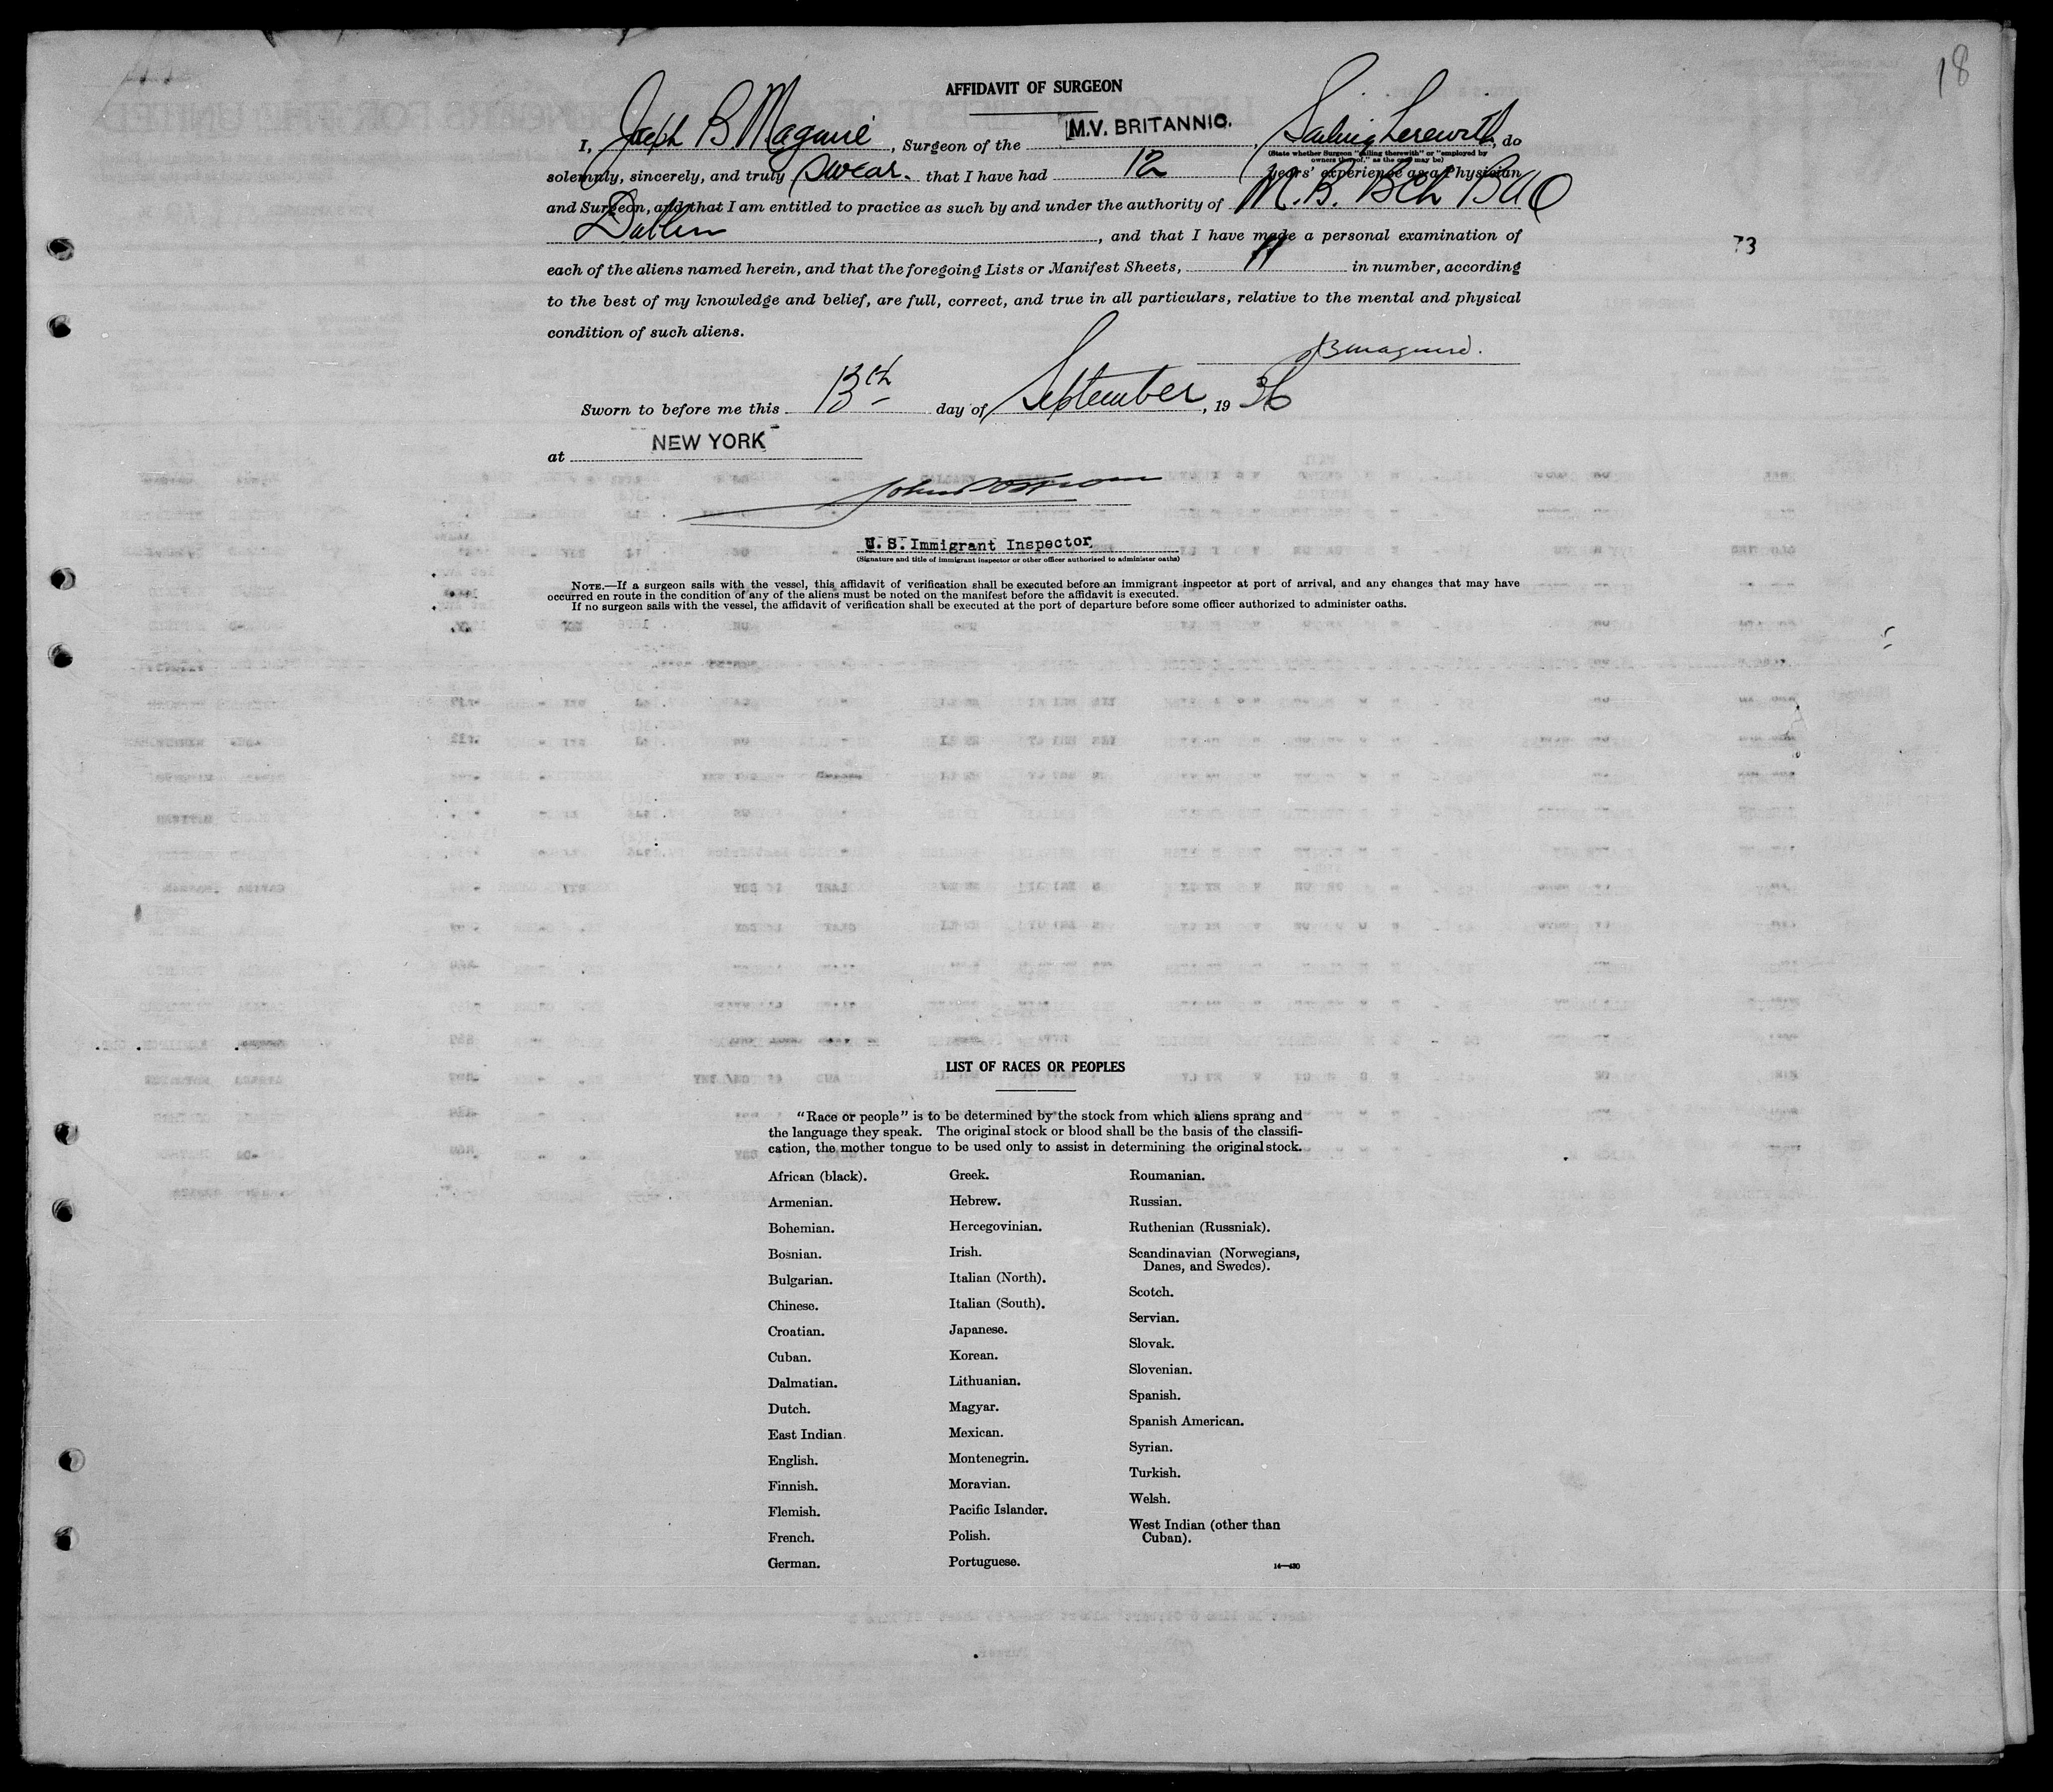 18
AFFIDAVIT OF SURGEON
I, Joseph B Maguire, Surgeon of the M.V. BRITANNIC., Sailing therewith, do
(State whether Surgeon "sailing therewith" or "employed by owners thereof," as the case may be)
solemnly, sincerely, and truly swear. that I have had 12 years' experience as a Physician
and Surgeon, and that I am entitled to practice as such by and under the authority of M.B. BCh BAO
Dublin, and that I have made a personal examination of
73
each of the aliens named herein, and that the foregoing Lists or Manifest Sheets, 11 in number, according
to the best of my knowledge and belief, are full, correct, and true in all particulars, relative to the mental and physical
condition of such aliens.
JBMaguire.
Sworn to before me this 13th day of September, 1936
at NEW YORK
John
U. S. Immigrant Inspector,
(Signature and title of immigrant inspector or other officer authorized to administer oaths)
NOTE.—If a surgeon sails with the vessel, this affidavit of verification shall be executed before an immigrant inspector at port of arrival, and any changes that may have
occurred en route in the condition of any of the aliens must be noted on the manifest before the affidavit is executed.
If no surgeon sails with the vessel, the affidavit of verification shall be executed at the port of departure before some officer authorized to administer oaths.
LIST OF RACES OR PEOPLES
"Race or people" is to be determined by the stock from which aliens sprang and
the language they speak. The original stock or blood shall be the basis of the classifi-
cation, the mother tongue to be used only to assist in determining the original stock.
African (black).
Armenian.
Bohemian.
Bosnian.
Bulgarian.
Chinese.
Croatian.
Cuban.
Dalmatian.
Dutch.
East Indian.
English.
Finnish.
Flemish.
French.
German.
Greek.
Hebrew.
Hercegovinian.
Irish.
Italian (North).
Italian (South).
Japanese.
Korean.
Lithuanian.
Magyar.
Mexican.
Montenegrin.
Moravian.
Pacific Islander.
Polish.
Portuguese.
Roumanian.
Russian.
Ruthenian (Russniak).
Scandinavian (Norwegians,
Danes, and Swedes).
Scotch.
Servian.
Slovak.
Slovenian.
Spanish.
Spanish American.
Syrian.
Turkish.
Welsh.
West Indian (other than
Cuban).
14—430